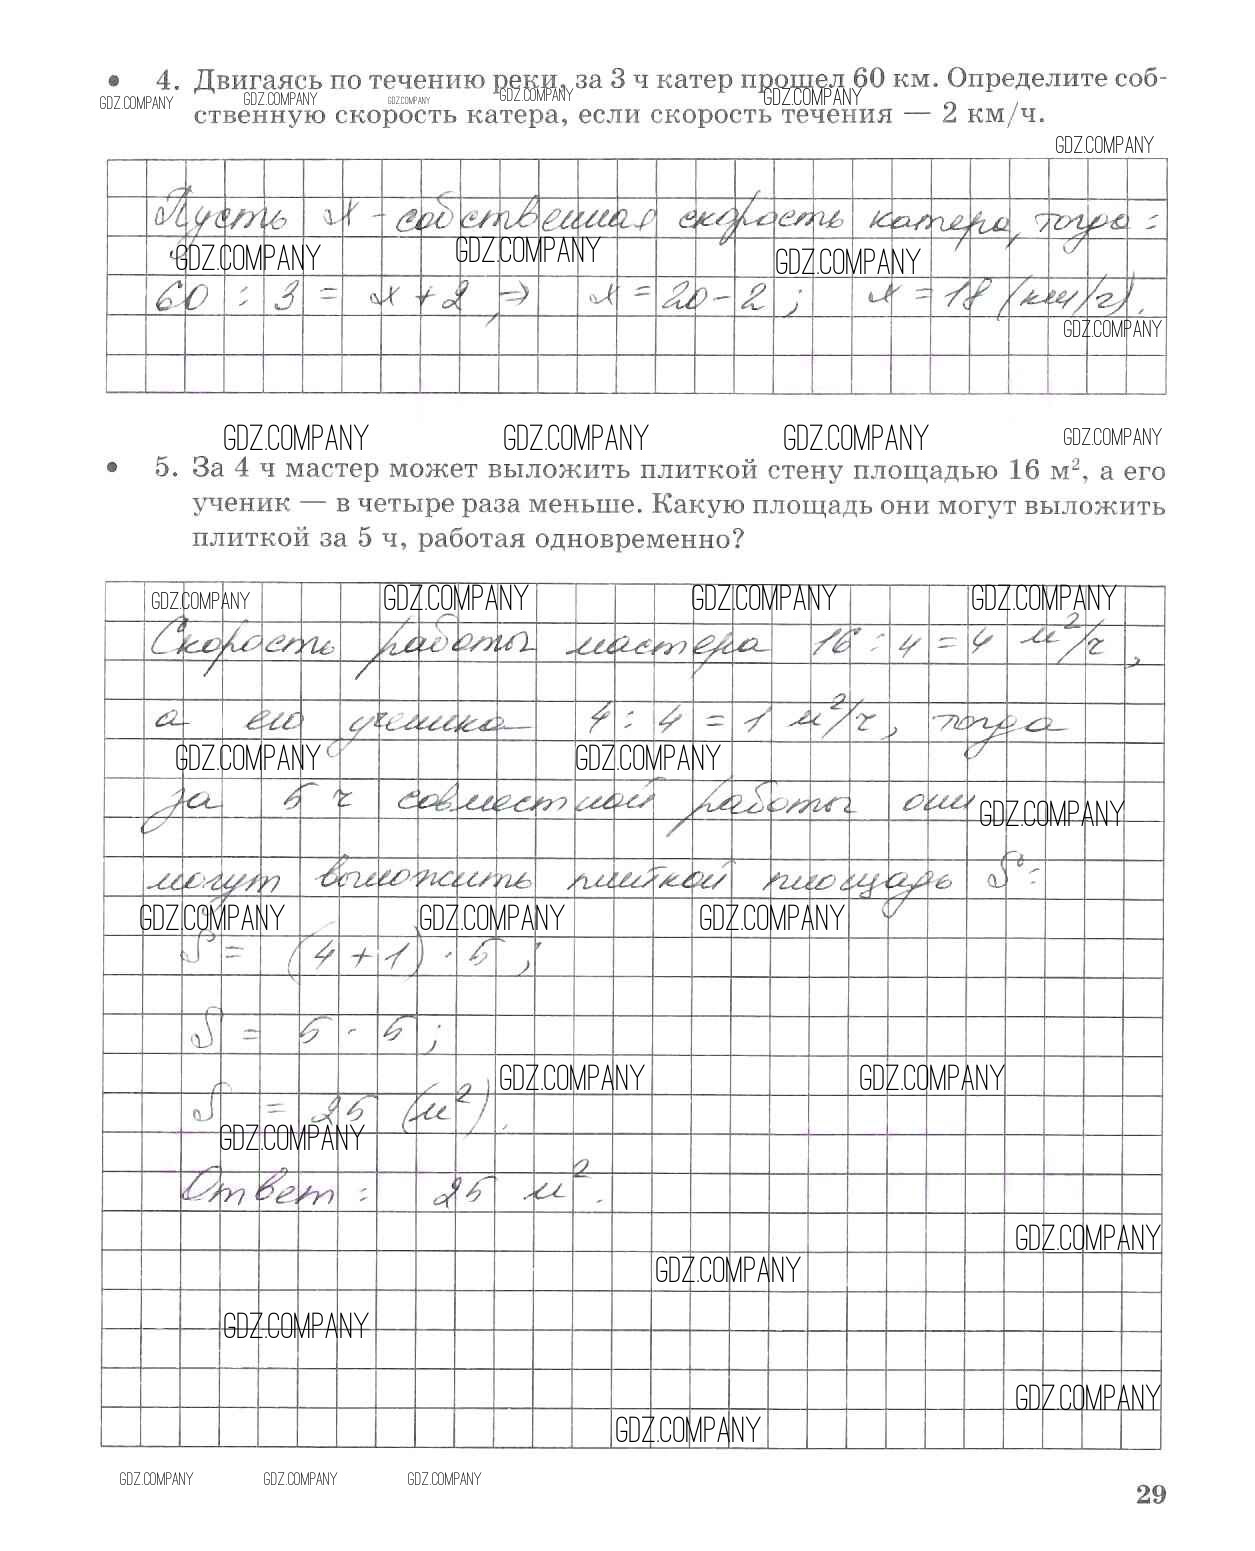 • 4. Двигаясь по течению реки, за 3 ч катер прошел 60 км. Определите соб-
GDZ.COMPANY GDZ.COMPANY GDZ.COMPANY GDZ.COMPANY GDZ.COMPANY
ственную скорость катера, если скорость течения — 2 км/ч.
GDZ.COMPANY
Пусть x - собственная скорость катера, тогда:
GDZ.COMPANY GDZ.COMPANY GDZ.COMPANY
60 : 3 = x + 2, ⇒ x = 20 - 2; x = 18 (км/ч).
GDZ.COMPANY
GDZ.COMPANY GDZ.COMPANY GDZ.COMPANY GDZ.COMPANY
• 5. За 4 ч мастер может выложить плиткой стену площадью 16 м², а его
ученик — в четыре раза меньше. Какую площадь они могут выложить
плиткой за 5 ч, работая одновременно?
GDZ.COMPANY GDZ.COMPANY GDZ.COMPANY GDZ.COMPANY
Скорость работы мастера 16 : 4 = 4 м²/ч,
а его ученика 4 : 4 = 1 м²/ч, тогда
GDZ.COMPANY GDZ.COMPANY
за 5 ч совместной работы они
GDZ.COMPANY
могут выложить плиткой площадь S:
GDZ.COMPANY GDZ.COMPANY GDZ.COMPANY
S = (4 + 1) · 5;
S = 5 · 5;
GDZ.COMPANY GDZ.COMPANY
S = 25 (м²).
GDZ.COMPANY
Ответ: 25 м².
GDZ.COMPANY
GDZ.COMPANY
GDZ.COMPANY
GDZ.COMPANY
GDZ.COMPANY
GDZ.COMPANY GDZ.COMPANY GDZ.COMPANY
29